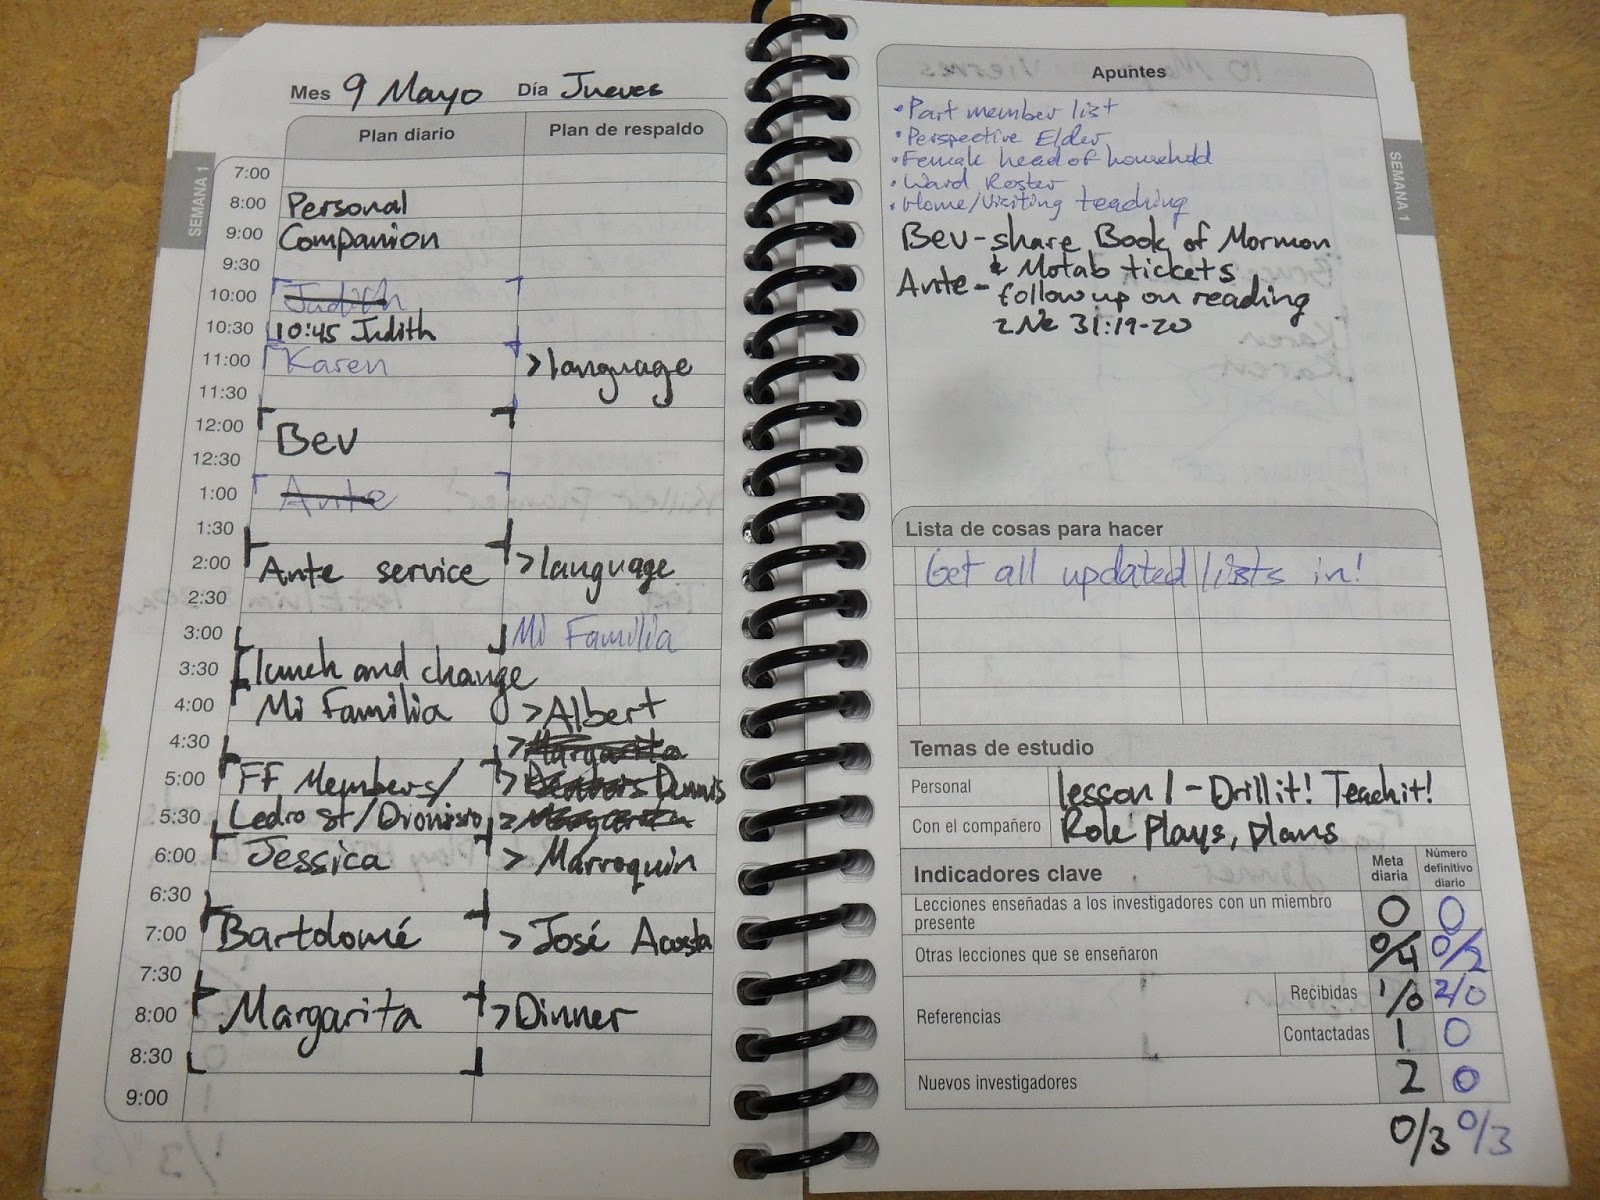 Mes 9 Mayo Día Jueves
Plan diario Plan de respaldo
SEMANA 1
7:00
8:00 Personal
9:00 Companion
9:30
10:00 Judith
10:30 10:45 Judith
11:00 Karen >language
11:30
12:00 Bev
12:30
1:00 Ante
1:30
2:00 Ante service >language
2:30
3:00 Mi Familia
3:30 lunch and change
4:00 Mi Familia >Albert
4:30 >Margarita
5:00 FF Members/ > Dennis
5:30 Ledro St/Dionisio > Margarita
6:00 Jessica > Marroquin
6:30
7:00 Bartolomé > José Acosta
7:30
8:00 Margarita >Dinner
8:30
9:00
Apuntes
SEMANA 1
• Part member list
• Perspective Elder
• Female head of household
• Ward Roster
• Home/Visiting teaching
Bev - share Book of Mormon
& Motab tickets
Ante - follow up on reading
2 Ne 31:19-20
Lista de cosas para hacer
Get all updated lists in!
Temas de estudio
Personal lesson 1 - Drill it! Teach it!
Con el compañero Role Plays, plans
Indicadores clave Meta diaria Número definitivo diario
Lecciones enseñadas a los investigadores con un miembro presente 0 0
Otras lecciones que se enseñaron 0/4 0/2
Referencias Recibidas 1/0 2/0
Contactadas 1 0
Nuevos investigadores 2 0
0/3 0/3